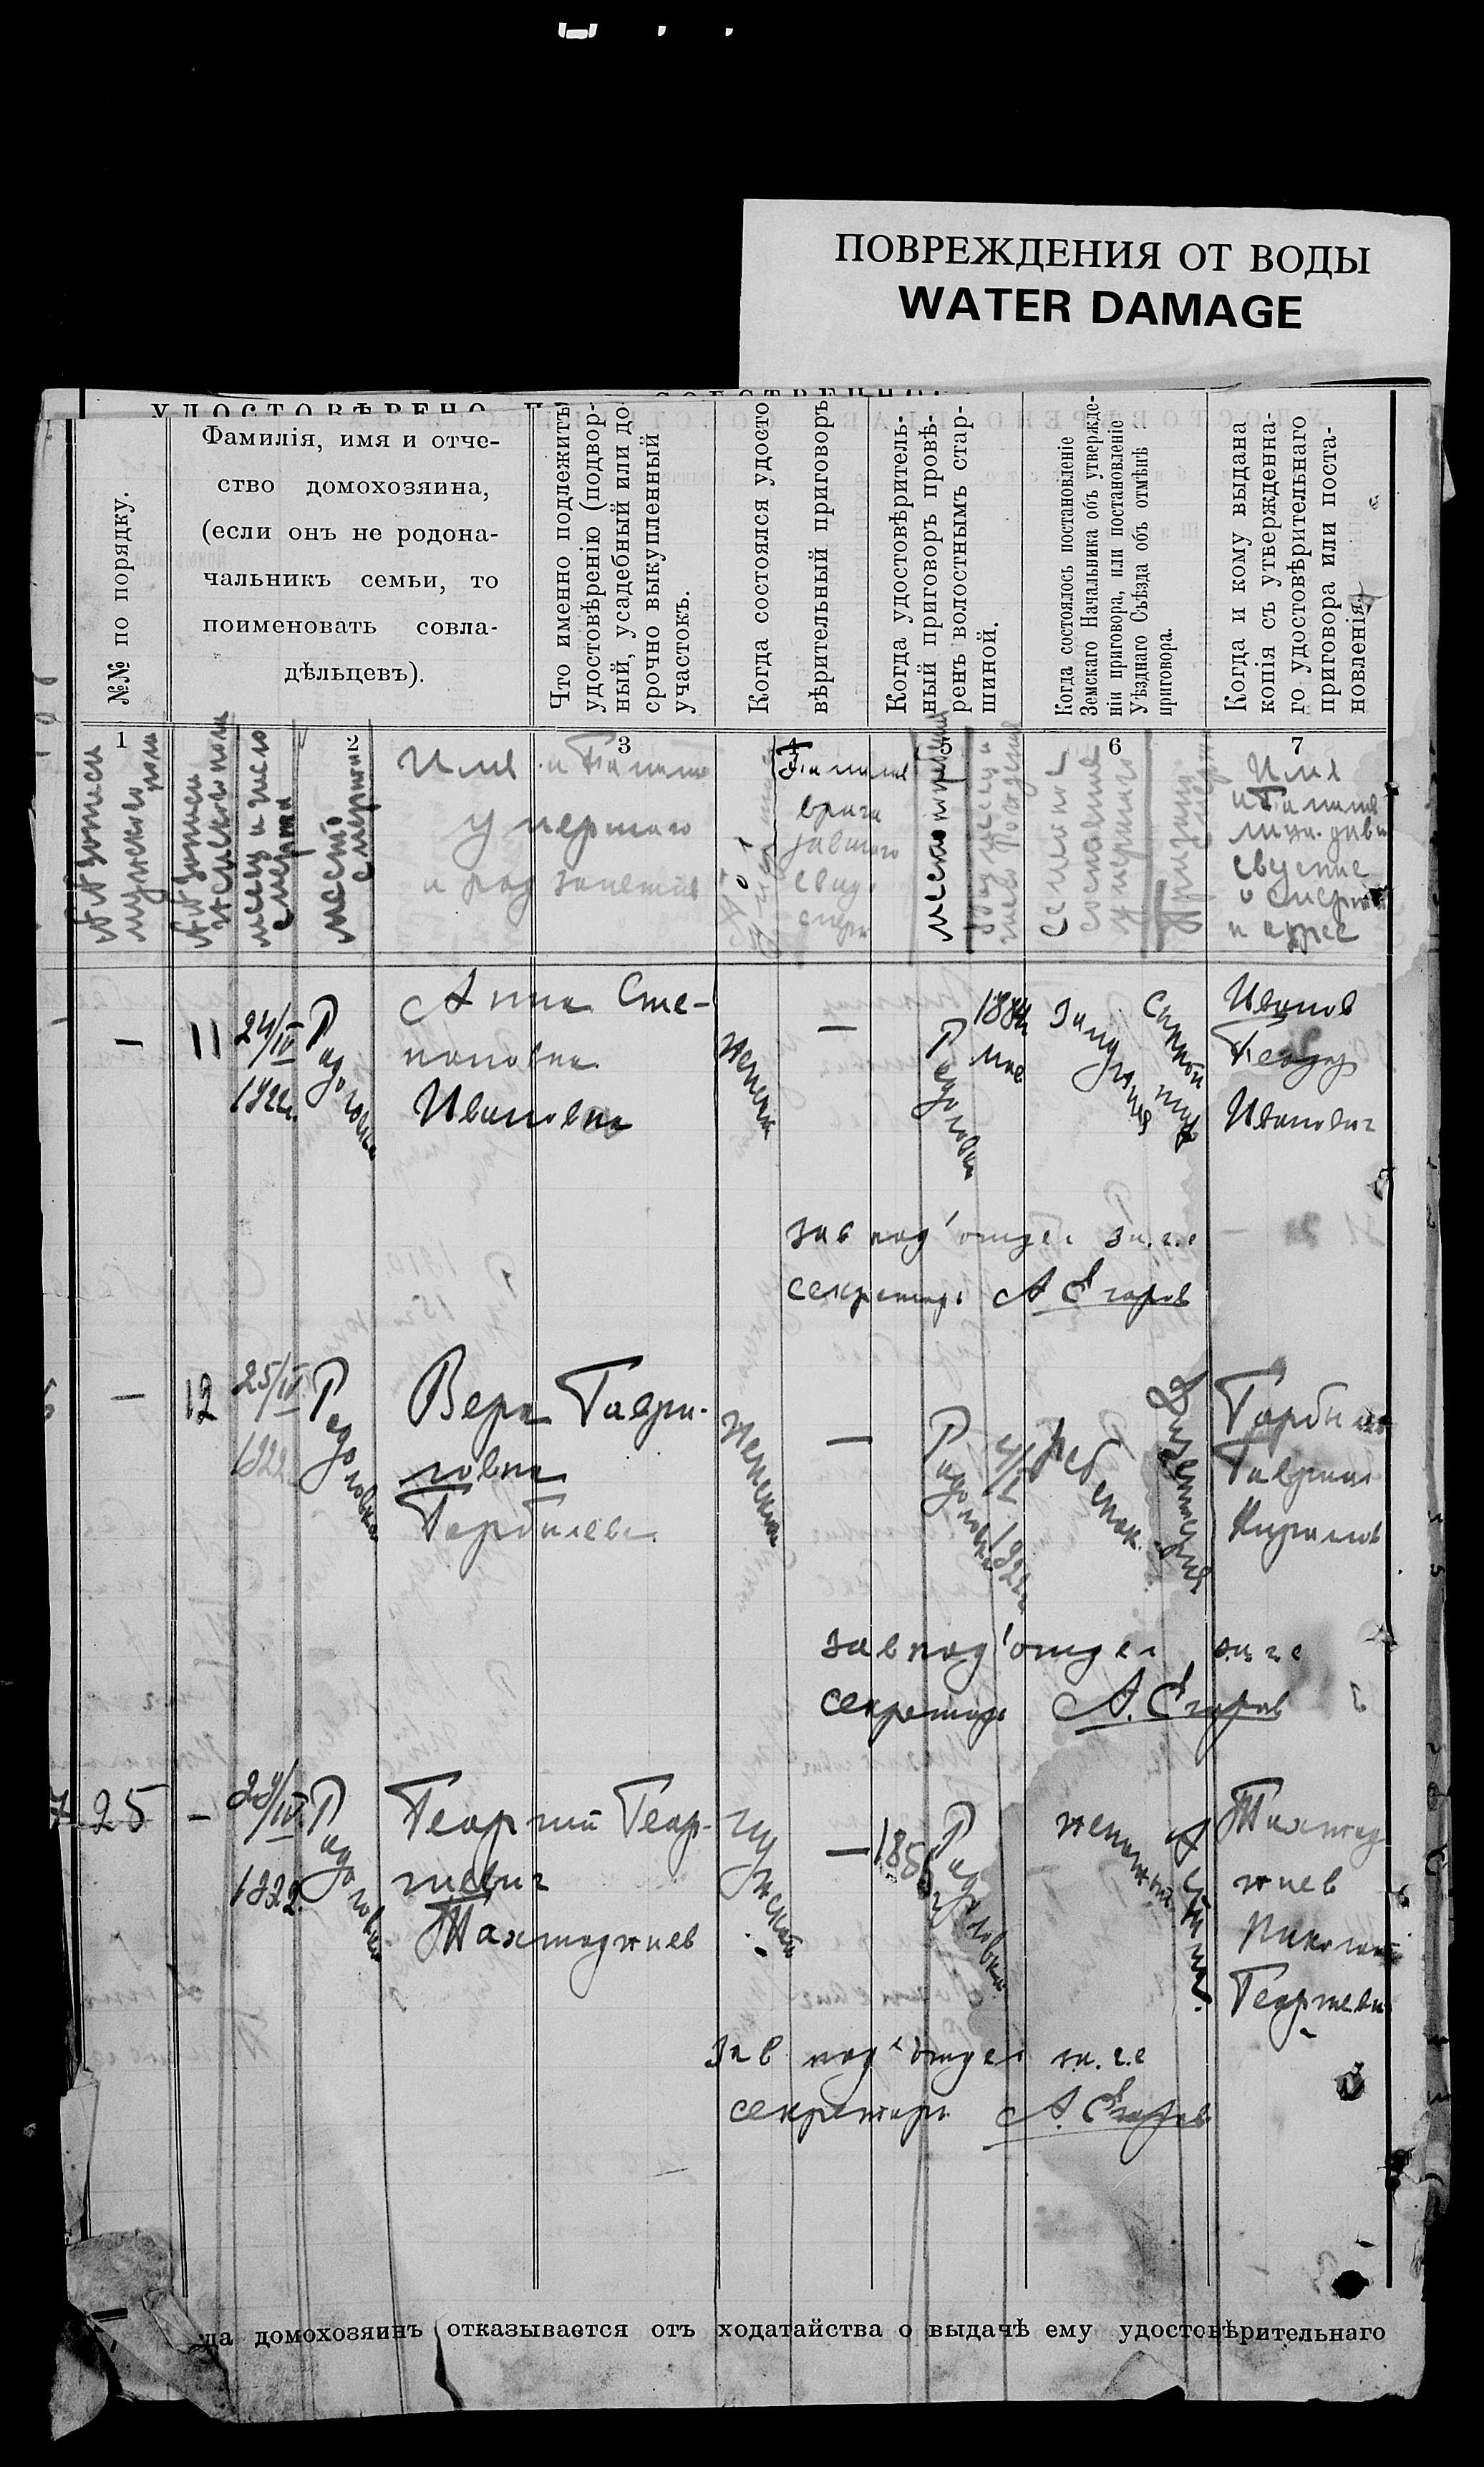 ПОВРЕЖДЕНИЯ ОТ ВОДЫ
WATER DAMAGE
УДОСТОВѢРЕНО
№№ по порядку.
Фамилія, имя и отче-
ство домохозяина,
(если онъ не родона-
чальникъ семьи, то
поименовать совла-
дѣльцевъ).
Что именно подлежитъ
удостовѣренію (подвор-
ный, усадебный или до-
срочно выкупленный
участокъ.
Когда состоялся удосто
вѣрительный приговоръ
Когда удостовѣритель-
ный приговоръ провѣ-
ренъ волостнымъ стар-
шиной.
Когда состоялось постановленіе
Земскаго Начальника объ утвержде-
ніи приговора, или постановленіе
Уѣзднаго Съѣзда объ отмѣнѣ
приговора.
Когда и кому выдана
копія съ утвержденна-
го удостовѣрительнаго
приговора или поста-
новленія.
1
2
3
4
5
6
7
№№ записи
мужского пола
№№ записи
женского пола
месец и число
смерти
место
смерти
Имя и Фамилия
умершаго
и род занетия
Фамилия
врача
давшаго
свид.
смерти
Семейное
состояние
умершаго
Имя
и Фамилия
лица. давш
сведение
о смерти
и адрес
—
11
24/IV
1922г.
Радоловка
Анна Сте-
пановна
Иванова
женский
—
Радоловка
1884г.
мае
Замужняя
Сыпной тиф
Иванов
Феодор
Иванович
зав под'отдел за.г.с
секретарь А Егоров
—
12
25/IV
1922.
Радоловка
Вера Гаври-
ловна
Гарбалева
женский
—
Радоловка
1922г.
Ребенок.
Дизентерия
Гаврил
Кирилов
зав под'отдел за г с
секретарь А. Егоров
25
—
1922.
Радоловка
Георгий Геор-
гиевич
Тахтаджиев
мужской
—
185
Радоловка
женатый
Тахтад
жиев
Николай
Георгиевич
зав под'отдел за.г.с
секретарь А. Егоров
да домохозяинъ отказывается отъ ходатайства о выдачѣ ему удостовѣрительнаго